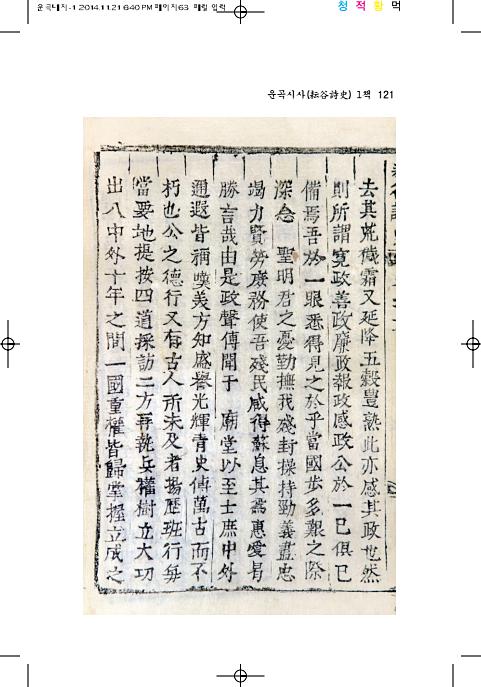 운곡시사(耘谷詩史) 1책 121
청 적 황 먹
去其荒穢霜又延降五穀豊熟此亦感其政也然
則所謂寬政善政廉政報政感政公於一已俱已
備焉吾於一眼悉得見之於乎當國步多艱之際
深念 聖明君之憂勤撫我殘封操持勁義盡忠
竭力賢勞庶務使吾殘民咸得蘇息其爲惠愛曷
勝言哉由是政聲傳聞于 廟堂以至士庶中外
通遐皆稱嘆美方知盛譽光輝青史傳萬古而不
朽也公之德行又有古人所未及者揚歷班行每
當要地提按四道採訪二方再執兵權樹立大功
出入中外十年之間一國重權皆歸掌握立成之